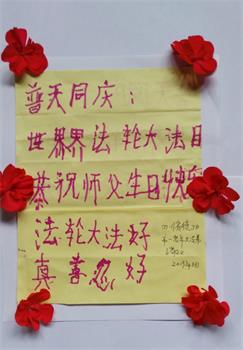 普天同庆：
世界法轮大法日
恭祝师父生日快乐
法轮大法好
真善忍好